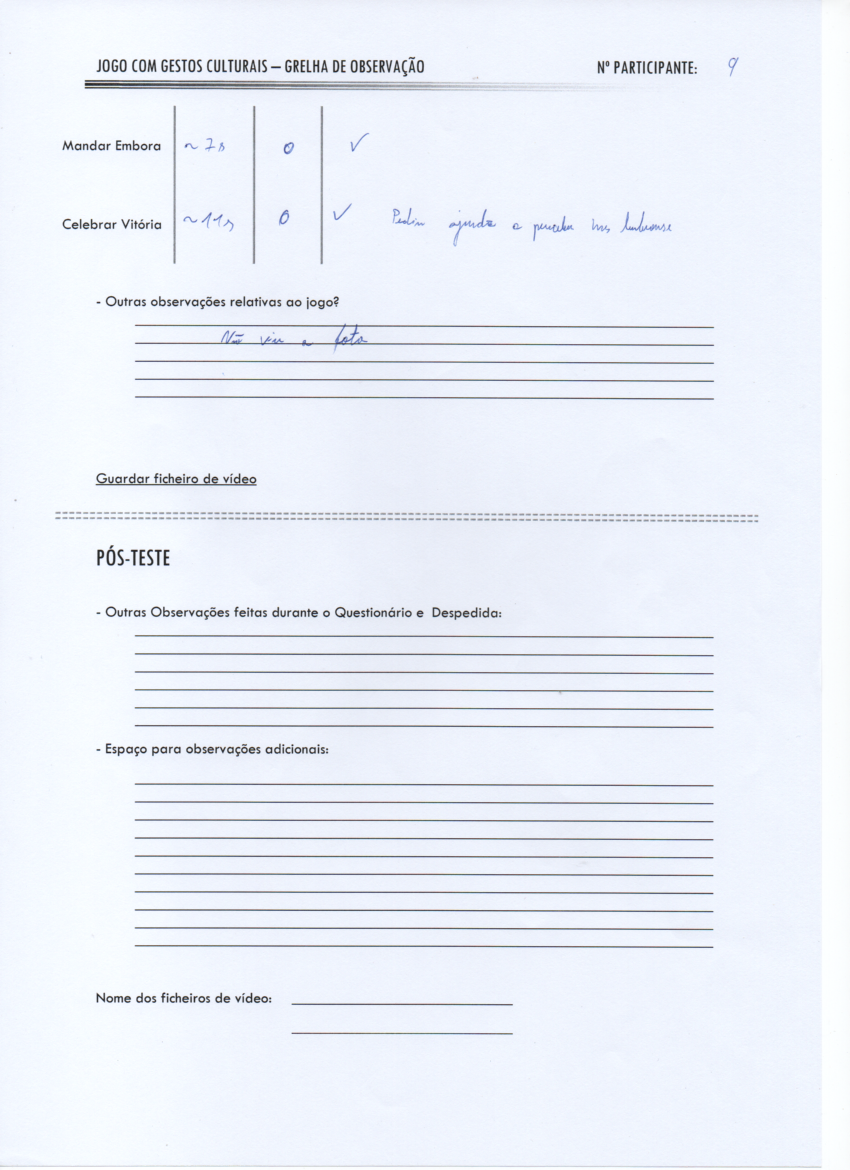 JOGO COM GESTOS CULTURAIS – GRELHA DE OBSERVAÇÃO Nº PARTICIPANTE: 9
Mandar Embora ~7s 0 ✓
Celebrar Vitória ~11s 0 ✓ Pediu ajuda a perceber mas lembrouse
- Outras observações relativas ao jogo?
Não viu a foto
Guardar ficheiro de vídeo
PÓS-TESTE
- Outras Observações feitas durante o Questionário e Despedida:
- Espaço para observações adicionais:
Nome dos ficheiros de vídeo: